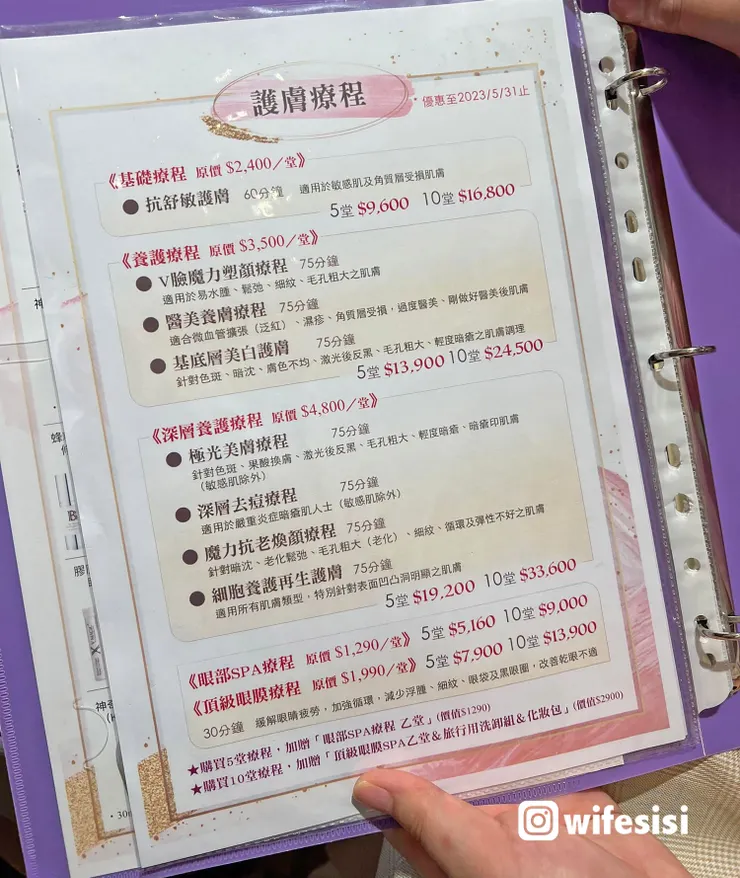 護膚療程
優惠至2023/5/31止
《基礎療程 原價 $2,400／堂》
● 抗舒敏護膚 60分鐘 適用於敏感肌及角質層受損肌膚
5堂 $9,600 10堂 $16,800
《養護療程 原價 $3,500／堂》
● V臉魔力塑顏療程 75分鐘
適用於易水腫、鬆弛、細紋、毛孔粗大之肌膚
● 醫美養膚療程 75分鐘
適合微血管擴張（泛紅）、濕疹、角質層受損，過度醫美、剛做好醫美後肌膚
● 基底層美白護膚 75分鐘
針對色斑、暗沈、膚色不均、激光後反黑、毛孔粗大、輕度暗瘡之肌膚調理
5堂 $13,900 10堂 $24,500
《深層養護療程 原價 $4,800／堂》
● 極光美膚療程 75分鐘
針對色斑、果酸換膚、激光後反黑、毛孔粗大、輕度暗瘡、暗瘡印肌膚
（敏感肌除外）
● 深層去痘療程 75分鐘
適用於嚴重炎症暗瘡肌人士（敏感肌除外）
● 魔力抗老煥顏療程 75分鐘
針對暗沈、老化鬆弛、毛孔粗大（老化）、細紋、循環及彈性不好之肌膚
● 細胞養護再生護膚 75分鐘
適用所有肌膚類型，特別針對表面凹凸洞明顯之肌膚
5堂 $19,200 10堂 $33,600
《眼部SPA療程 原價 $1,290／堂》 5堂 $5,160 10堂 $9,000
《頂級眼膜療程 原價 $1,990／堂》 5堂 $7,900 10堂 $13,900
30分鐘 緩解眼睛疲勞，加強循環，減少浮腫、細紋、眼袋及黑眼圈，改善乾眼不適
★購買5堂療程，加贈「眼部SPA療程 乙堂」(價值$1290)
★購買10堂療程，加贈「頂級眼膜SPA乙堂＆旅行用洗卸組＆化妝包」(價值$2900)
wifesisi